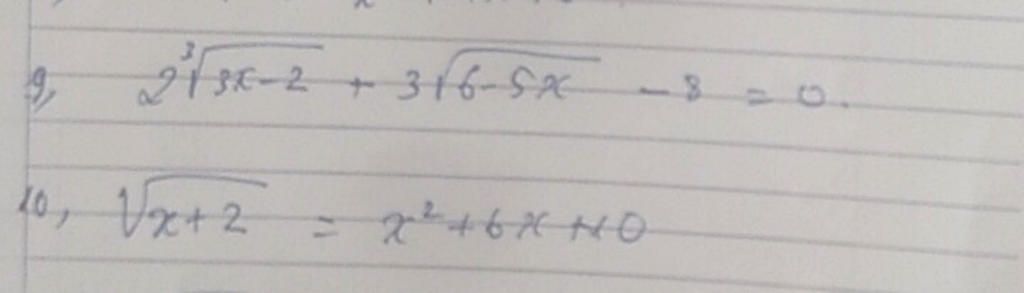 9, 2∛(3x-2) + 3√(6-5x) - 8 = 0.
10, √(x+2) = x² + 6x + 10